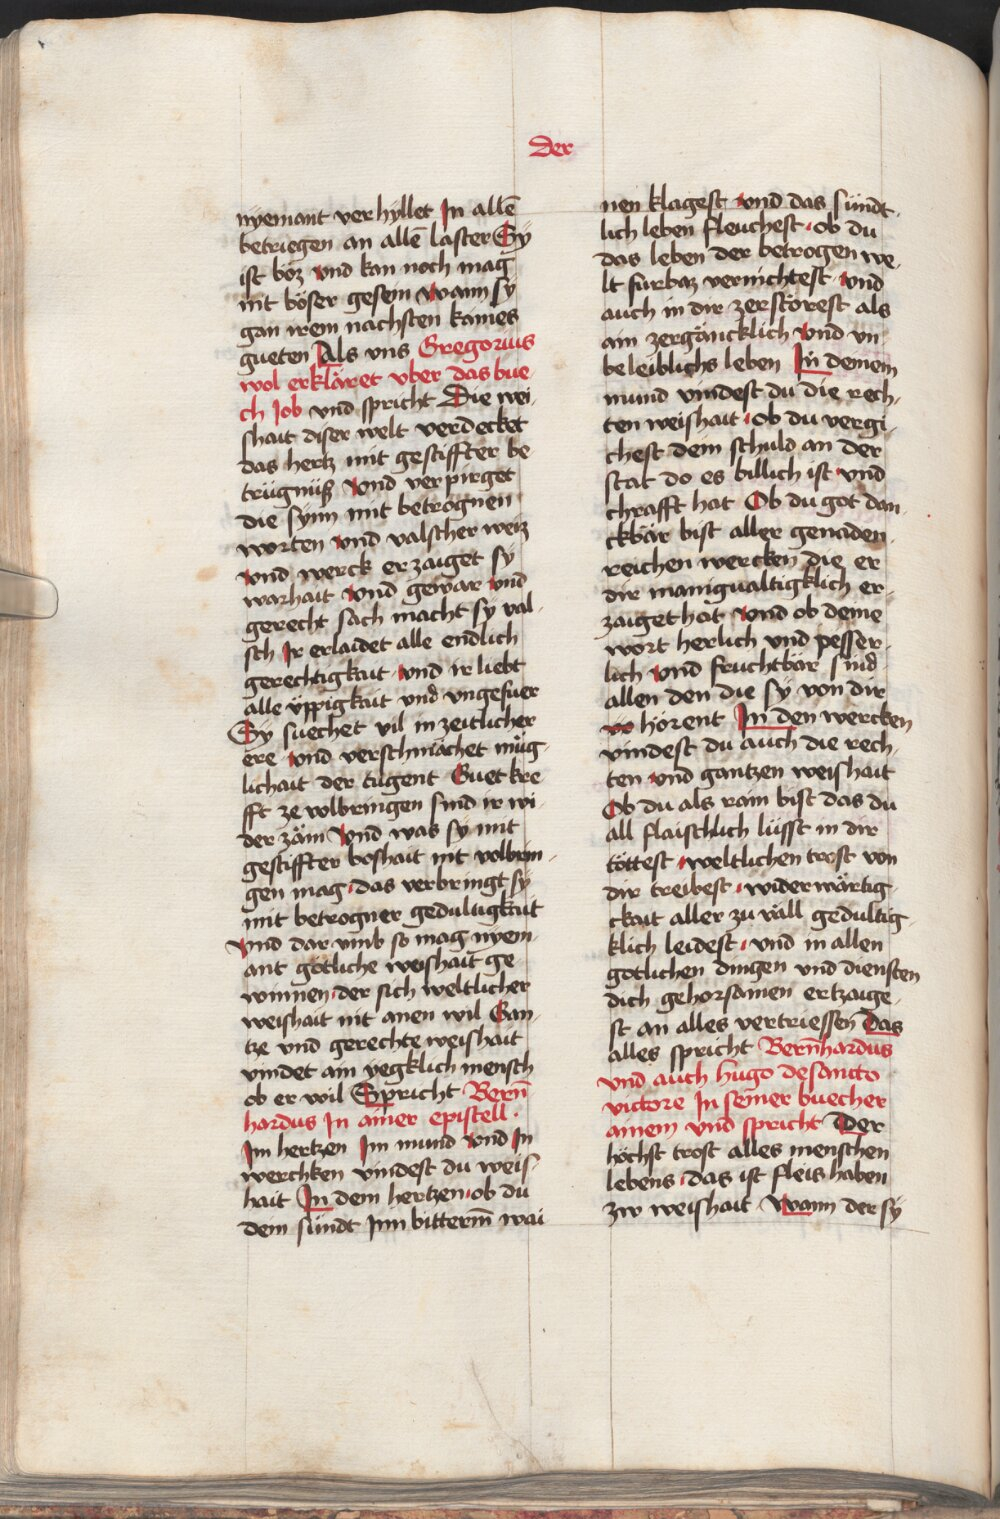 Der
nyemant verhyllet In allē
betriegen an allē laster Sy
ist böz vnd kan noch mag
nit böser gesein wann sy
gan irem nachsten kaines
gueten Als vns Gregorius
wol erkläret vber das bue
ch Job vnd spricht Die wei-
shait diser welt verdecket
das hertz mit gestiffter be
trügnüß vnd verpirget
die synn mit betrognen
worten vnd valscher weiz
vnd werck erzaiget sy
warhait vnd gewär vnd
gerecht sach macht sy val-
sch Ir erlaidet alle endlich
gerechtigkait vnd ir liebt
alle ÿppigkait vnd vngefuer
Sy suechet vil in zeitlicher
ere vnd verschmächet müg-
lichait der tugent Guet kre
fft ze volbringen sind ir wi-
der zäm Vnd was sy mit
gestiffter boshait nit volbrin-
gen mag das verbringt sy
mit betrogner gedultigkait
vnd dar vmb so mag nyem-
ant götliche weishait ge
winnen der sich weltlicher
weishait nit anen wil Gan-
tze vnd gerechte weishait
vindet ain yegklich mensch
ob er wil Spricht Bern̄
hardus In ainer epistell.
Im hertzen Im mund vnd In
werchken vindest du weis-
hait In dem hertzen ob du
dem sündt Inn bitterm̄ wai
nen klagest vnd das sündt-
lich leben fleuchest ob du
das leben der betrogen we-
lt fürbaz vernichtest vnd
auch in dir zerstörest als
ain zergäncklich vnd vn-
beleiblichs leben In deinem
mund vindest du die rech-
ten weishait ob du vergi-
chest dein schuld an der
stat do es billich ist vnd
chrafft hat Ob du got dan-
ckbär bist aller genaden-
reichen wercken die er
dir manigualtigklich er-
zaiget hat vnd ob deine
wort herlich vnd pesser-
lich vnd fruchtbär sind
allen den die sy von dir
vo hörent In den wercken
vindest du auch die rech-
ten vnd gantzen weishait
Ob du als rain bist das du
all flaischlich lüsst in dir
töttest weltlichen trost von
dir treibest widerwärtig-
ckait aller zu väll gedultig
klich leidest vnd in allen
gotlichen dingen vnd diensten
dich gehorsamen ertzaige-
st an alles vertriessen Das
alles spricht Bern̄hardus
vnd auch hugo de sancto
victore In seiner buecher
ainem vnd spricht Der
höchst trost alles menschen
lebens das ist fleis haben
zw weishait wann der sy